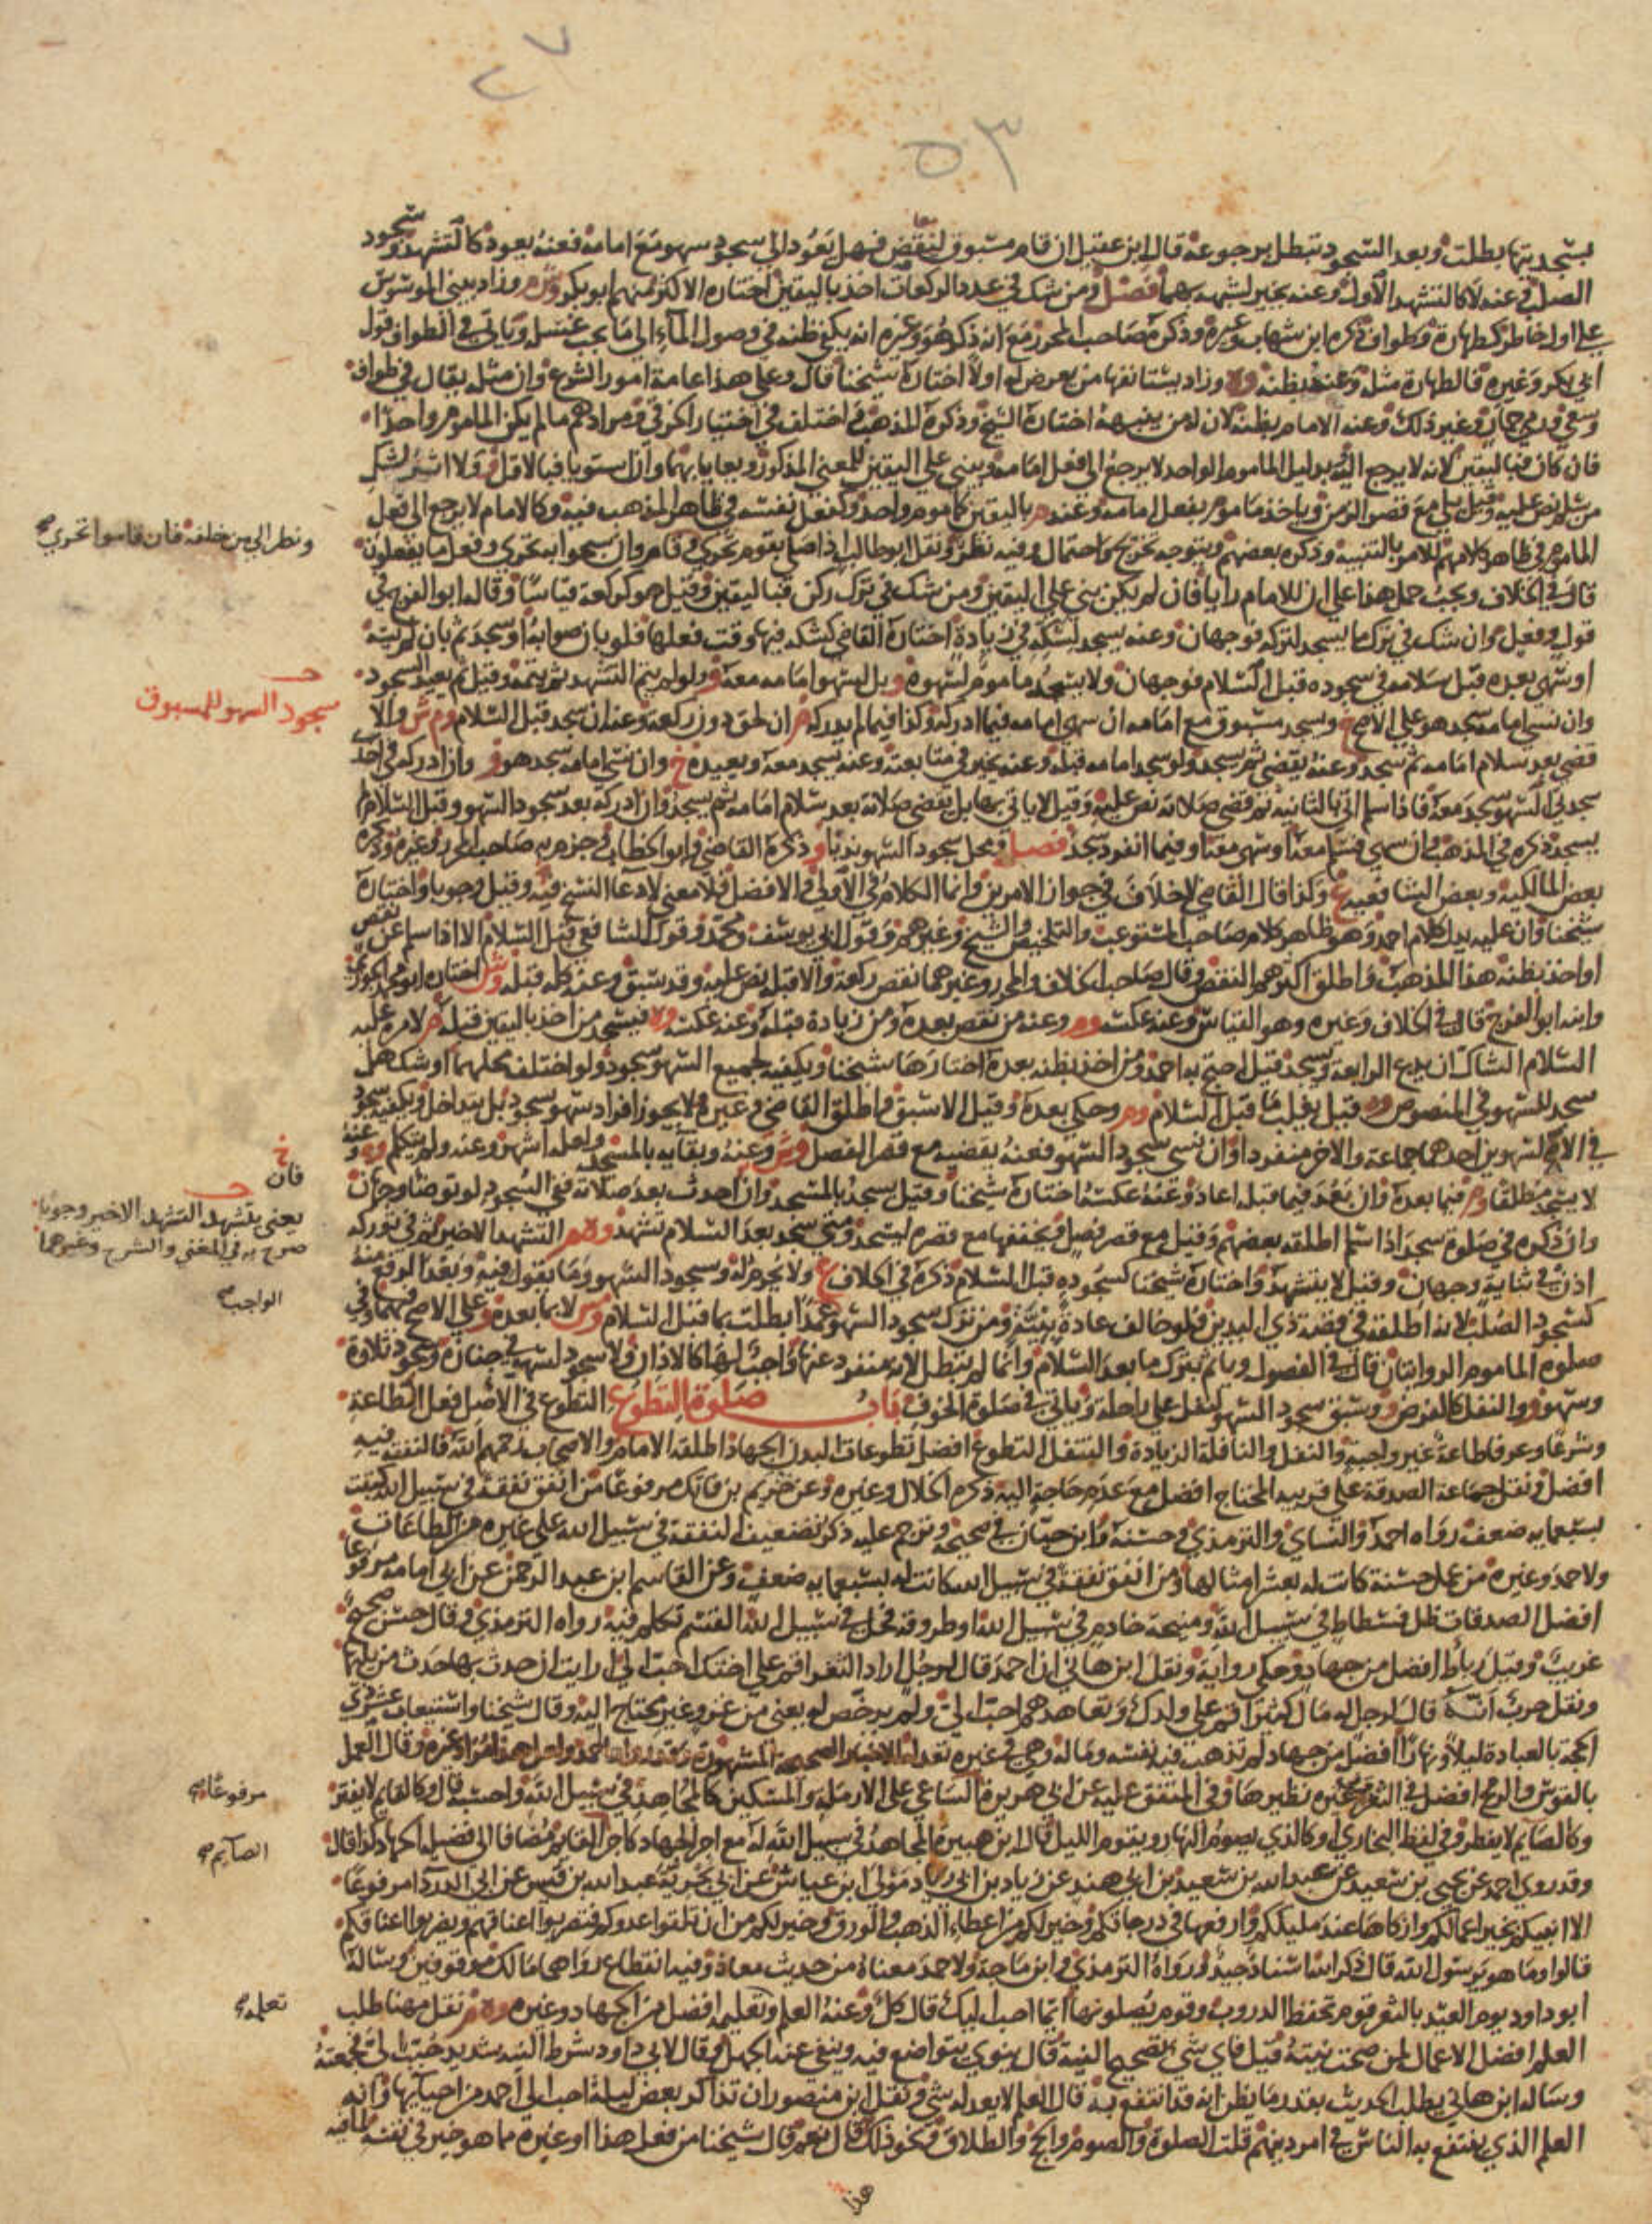 ٢٧
٥٣
يسجد بنى بطلت وبعد السجود تبطل برجوعه قال ابن عقيل ان قام مسبوق ليقض فهل يعود الى سجود سهو مع امامه فعنه يعود كالتشهد وسجود
الصلب وعنه لا كالتشهد الاول وعنه يخير لشبهه بهما فصل ومن شك في عدد الركعات اخذ باليقين اختاره الاكثر منهم ابو بكر وم ر وزاد يعني الموسوس
على اول خاطر كطهارة وطواف ذكره ابن شهاب وغيره وذكره صاحب المحرر مع انه ذكر هو وغيره انه يكفي ظنه في وصول الماء الى ما يجب غسله وياتي في الطواف قول
ابي بكر وغيره فالطهارة مثله وعنه بظنه وه وزاد يستانفها من يعرض له اولا اختاره شيخنا قال وعلى هذا عامة امور الشرع وان مثله يقال في طواف
وسعي ورمي جمار وغير ذلك وعنه الامام بظنه لان له من ينبهه اختاره الشيخ وذكره المذهب اختلف في اختيار الخرقي مرادهم ما لم يكن الماموم واحدا
فان كان فباليقين لانه لا يرجع اليه بدليل الماموم الواحد لا يرجع الى فعل امامه ويبني على اليقين للمعنى المذكور ويعايا بهما وان استويا فبالاقل ولا اثر لشك
من سلم نص عليه وقيل بلى مع قصر الزمن وياخذ ماموم بفعل امامه وعنه باليقين كماموم واحد وكفعل نفسه في ظاهر المذهب فيه وكالامام لا يرجع الى فعل
الماموم في ظاهر كلامهم للامر بالتنبيه وذكره بعضهم ويتوجه تخريج واحتمال وفيه نظر ونقل ابو طالب اذا صلى بقوم تحرى وقام وان سبحوا به تحرى وفعل ما يفعلون
قال في الخلاف ويجب حمل هذا على ان للامام رايا فان لم يكن بنى على اليقين ومن شك في ترك ركن فباليقين وقيل هو كركعة قياسا وقاله ابو الفرج في
قول وفعل وان شك في ترك ما يسجد لتركه فوجهان وعنه يسجد لشكه في زيادة اختاره القاضي كشكه فيها وقت فعلها فلو بان صوابه او سجد ثم بان لم يسه
او سهى بعده قبل سلامه في سجوده قبل السلام فوجهان ولا يسجد ماموم لسهوه و بل لسهو امامه معه و ولو لم يتم التشهد ثم يتمه وقيل ثم يعيد السجود
وان نسي امامه سجد هو على الاصح خ ويسجد مسبوق مع امامه ان سهى امامه فيما ادركه وكذا فيما لم يدركه خ ان لحق دون ركعة وعنه ان سجد قبل السلام وم ش والا
قضى بعد سلام امامه ثم سجد وعنه يقضي ثم يسجد ولو سجد امامه قبله وعنه يخير في متابعته وعنه يسجد معه ويعيده خ وان نسي امامه سجد هو و وان ادركه في احد
سجدتي السهو سجد معه فاذا سلم اتى بالثانية ثم قضى صلاته نص عليه وقيل لا ياتي بها بل يقضي صلاته بعد سلام امامه ثم يسجد وان ادركه بعد سجود السهو وقبل السلام لم
يسجد ذكره في المذهب وان سهى فسلم معه او سهى معه او فيما انفرد سجد فصل ومحل سجود السهو ندبا و ذكره القاضي وابو الخطاب وجزم به صاحب المحرر وغيره وذكره
بعض المالكية وبعض الشافعية ع وكذا قال القاضي لا خلاف في جواز الامرين وانما الكلام في الاولى والافضل فلا معنى لادعاء النسخ فيه وقيل وجوبا واختاره
شيخنا وان عليه يدل كلام احمد وهو ظاهر كلام صاحب المستوعب والتلخيص والشيخ وغيرهم وقول ابي يوسف ومحمد وقول للشافعي قبل السلام الا اذا سلم عن نقص
او اخذ بظنه هذا المذهب واطلق اكثرهم النقص وقال صاحب الخلاف والمحرر وغيرهما نقص ركعة والا قبله نص عليه وقد سبق وعنه كله قبله وش اختاره ابو محمد الجوزي
وابنه ابو الفرج قال في الخلاف وغيره وهو القياس وعنه عكسه وه وعنه من نقص بعده ومن زيادة قبله وعنه عكسه وم فيسجد من اخذ باليقين قبله خ لامره عليه
السلام الشاك ان يدع الرابعة ويسجد قيل احتج به احمد ومن اخذ بظنه بعده اختارها شيخنا ويكفيه لجميع السهو سجود ولو اختلف محلهما او شك هل
سجد للسهو في المنصوص وه قيل يغلب ما قبل السلام وم وحكي بعده وقيل الاسبق واطلق القاضي وغيره لا يجوز افراد سهو بسجود بل يتداخل ويكفيه سجود
في الاصح لسهوين احدهما جماعة والاخر منفردا وان نسي سجود السهو فعنه يقضيه مع قصر الفصل وش وعنه وبقايه بالمسجد ولعله اشهر وعنه ولم يتكلم وه وعنه
لا يسجد مطلقا وم فيما بعده وان بعد فيما قبله اعاد وعنه عكسه اختاره شيخنا وقيل يسجد بالمسجد وان احدث بعد صلاته ففي السجود لو توضا وجهان
وان ذكره في صلوة سجد اذا سلم اطلقه بعضهم وقيل مع قصر فصل ويخففها مع قصره ليسجد ومتى سجد بعد السلام تشهد وه م التشهد الاخير ثم في توركه
اذن في ثنايه وجهان وقيل لا يتشهد واختاره شيخنا كسجوده قبل السلام ذكره في الخلاف ع ولا يحرم له وسجود السهو وما يقول فيه وبعد الرفع منه
كسجود الصلب لانه اطلقه في قصة ذي اليدين فلو خالف عادة تبينه ومن ترك سجود السهو عمدا بطلت بما قبل السلام وش لا بما بعده على الاصح فيهما وفي
صلوة الماموم الروايتان قال في الفصول وياثم بترك ما بعد السلام وانما لم تبطل لانه منفرد عنها واجب لها كالاذان ولا سجود لسهو في جنازة وسجود تلاوة
وسهو و والنفل كالفرض و وسبق سجود السهو لنفل على راحلة وياتي في صلوة الخوف باب صلوة التطوع التطوع في الاصل فعل الطاعة
وشرعا وعرفا طاعة غير واجبة والنفل والنافلة الزيادة والتنفل التطوع افضل تطوعات البدن الجهاد اطلقه الامام والاصحاب رحمهم الله فالنفقة فيه
افضل ونقل جماعة الصدقة على قريبه المحتاج افضل مع عدم حاجته اليه ذكره الخلال وغيره وعن خريم بن فاتك مرفوعا من انفق نفقة في سبيل الله كتبت
بسبعمايه ضعف رواه احمد والنساي والترمذي وحسنه وابن حبان في صحيحه وترجم عليه ذكر تضعيف النفقة في سبيل الله على غيره من الطاعات
ولاحمد وغيره من عمل حسنة كانت له بعشر امثالها ومن انفق نفقة في سبيل الله كانت له بسبعمايه ضعف وعن القاسم ابن عبد الرحمن عن ابي امامه مرفوعا
افضل الصدقات ظل فسطاط في سبيل الله ومنيحة خادم في سبيل الله او طروقة فحل في سبيل الله القسم تكلم فيه رواه الترمذي وقال حسن صحيح
غريب وقيل رباط افضل من جهاد وحكي رواية ونقل ابن هاني ان احمد قال لرجل اراد الثغر اقم على اختك احب الي ارايت ان حدث بها حدث من يليها
ونقل حرب انه قال لرجل له مال كثير اقم على ولدك وتعاهدهم احب الي ولم يرخص له يعني من غزو غير محتاج اليه وقال شيخنا واستيعاب عشر ذي
الحجة بالعبادة ليلا ونهارا افضل من جهاد لم تذهب فيه نفسه وماله وهي في غيره تعدله للاخبار الصحيحة المشهورة وقد رواها احمد ولعل هذا مراد غيره وقال العمل
بالقوس والرمح افضل في الثغر وفي غيره نظيرها وفي المتفق عليه عن ابي هريرة الساعي على الارملة والمسكين كالمجاهد في سبيل الله واحسبه قال وكالقايم لا يفتر
وكالصايم لا يفطر وفي لفظ البخاري او كالذي يصوم النهار ويقوم الليل قال ابن هبيرة المجاهد في سبيل الله له مع اجر الجهاد كاجر القايم مضافا الى فضيلة الجهاد كذا قال
وقد روى احمد عن يحيى بن سعيد عن عبد الله بن سعيد بن ابي هند عن زياد بن ابي زياد مولى ابن عياش عن ابي بحرية عبد الله بن قيس عن ابي الدرداء مرفوعا
الا انبيكم بخير اعمالكم وازكاها عند مليككم وارفعها في درجاتكم وخير لكم من اعطاء الذهب والورق وخير لكم من ان تلقوا عدوكم فتضربوا اعناقهم ويضربوا اعناقكم
قالوا وما هو يرسول الله قال ذكر الله اسناد جيد ورواه الترمذي وابن ماجة ولاحمد معناه من حديث معاذ وفيه انقطاع رواهما مالك موقوفين وساله
ابو داود يوم العيد بالثغر قوم تحفظ الدروب وقوم يصلون بها ايما احب اليك قال كل وعنه العلم وتعليمه افضل من الجهاد وغيره وه م نقل مهنا طلب
العلم افضل الاعمال لمن صحت نيته قيل فاي شي تصحيح النية قال ينوي يتواضع فيه وينفي عنه الجهل وقال لابي داود شرط النية شديد حبب الي فجمعته
وساله ابن هاني يطلب الحديث بقدر ما يظن انه قد انتفع به قال العلم لا يعدله شي ونقل ابن منصور ان تذاكر بعض ليلة احب الى احمد من احيايها وانه
العلم الذي ينتفع به الناس في امر دينهم قلت الصلوة والصوم والحج والطلاق ونحو ذلك قال نعم قال شيخنا من فعل هذا او غيره مما هو خير في نفسه لما فيه
هذا
ونظر الى من خلفه فان قاموا تحرى
سجود السهو للمسبوق
فان
يعني يتشهد التشهد الاخير وجوبا
صرح به في المغني والشرح وغيرهما
الواجب
مرفوعا
الصايم
تعلمه